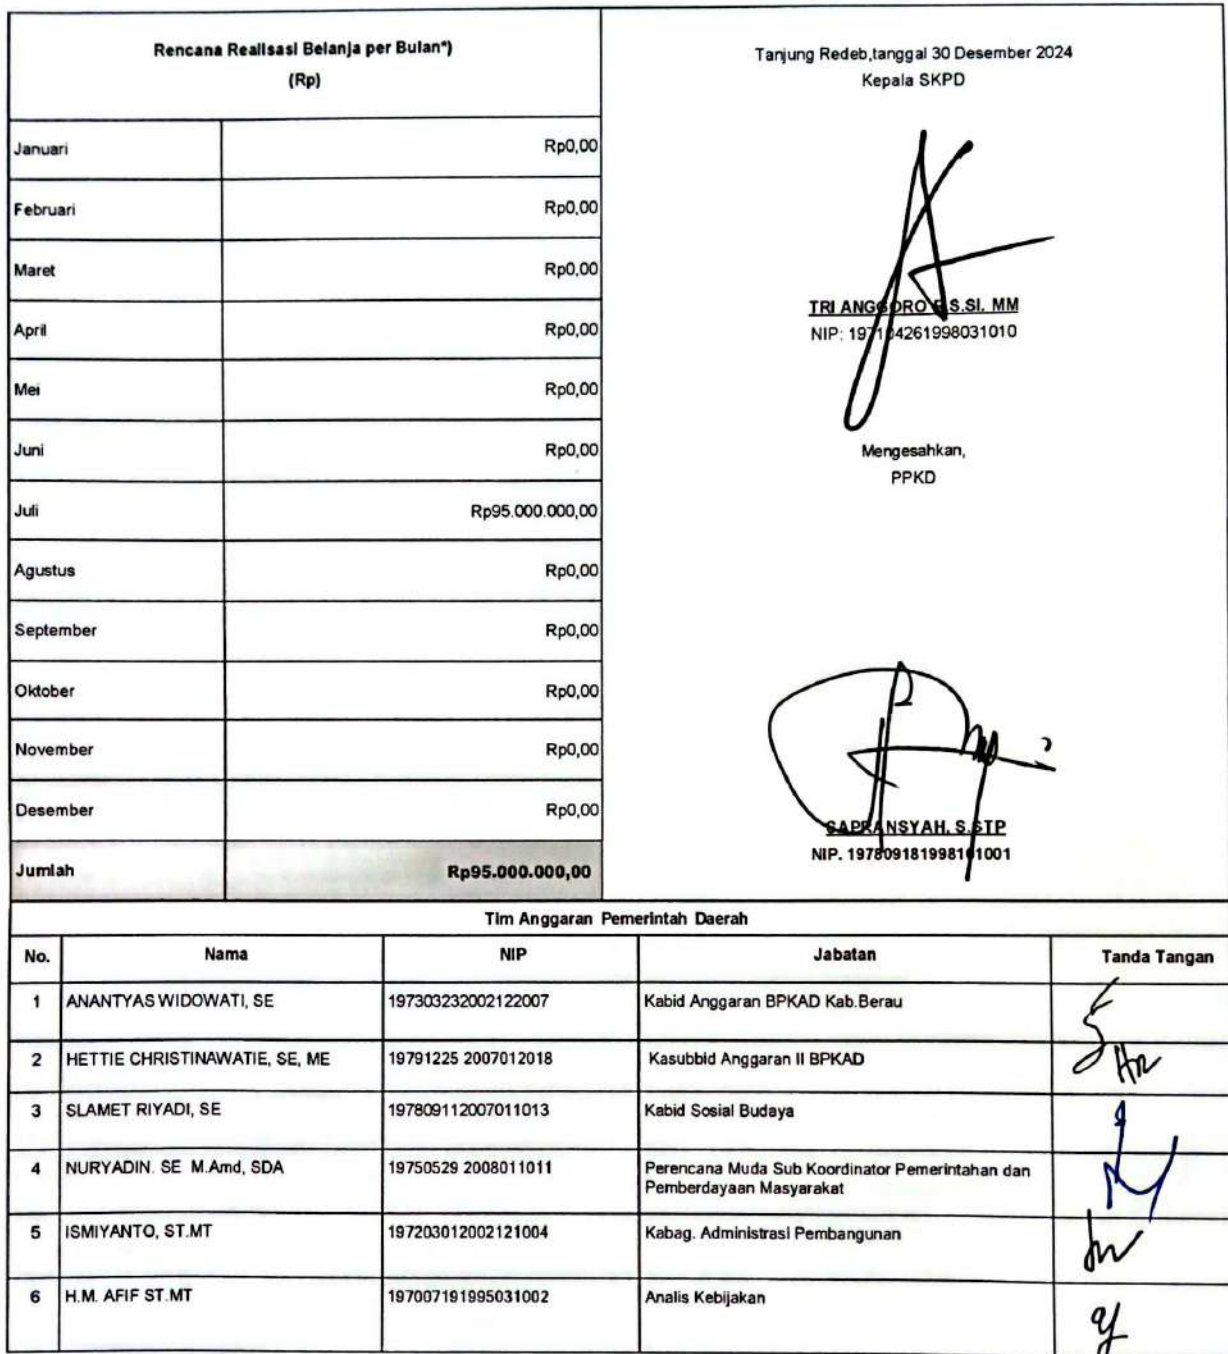 Rencana Realisasi Belanja per Bulan*)
(Rp)
Januari Rp0,00
Februari Rp0,00
Maret Rp0,00
April Rp0,00
Mei Rp0,00
Juni Rp0,00
Juli Rp95.000.000,00
Agustus Rp0,00
September Rp0,00
Oktober Rp0,00
November Rp0,00
Desember Rp0,00
Jumlah Rp95.000.000,00
Tanjung Redeb,tanggal 30 Desember 2024
Kepala SKPD
TRI ANGGORO S.SI. MM
NIP: 197104261998031010
Mengesahkan,
PPKD
SAPRANSYAH, S.STP
NIP. 197809181998101001
Tim Anggaran Pemerintah Daerah
No. Nama NIP Jabatan Tanda Tangan
1 ANANTYAS WIDOWATI, SE 197303232002122007 Kabid Anggaran BPKAD Kab.Berau
2 HETTIE CHRISTINAWATIE, SE, ME 19791225 2007012018 Kasubbid Anggaran II BPKAD
3 SLAMET RIYADI, SE 197809112007011013 Kabid Sosial Budaya
4 NURYADIN. SE M.Amd, SDA 19750529 2008011011 Perencana Muda Sub Koordinator Pemerintahan dan
Pemberdayaan Masyarakat
5 ISMIYANTO, ST.MT 197203012002121004 Kabag. Administrasi Pembangunan
6 H.M. AFIF ST.MT 197007191995031002 Analis Kebijakan